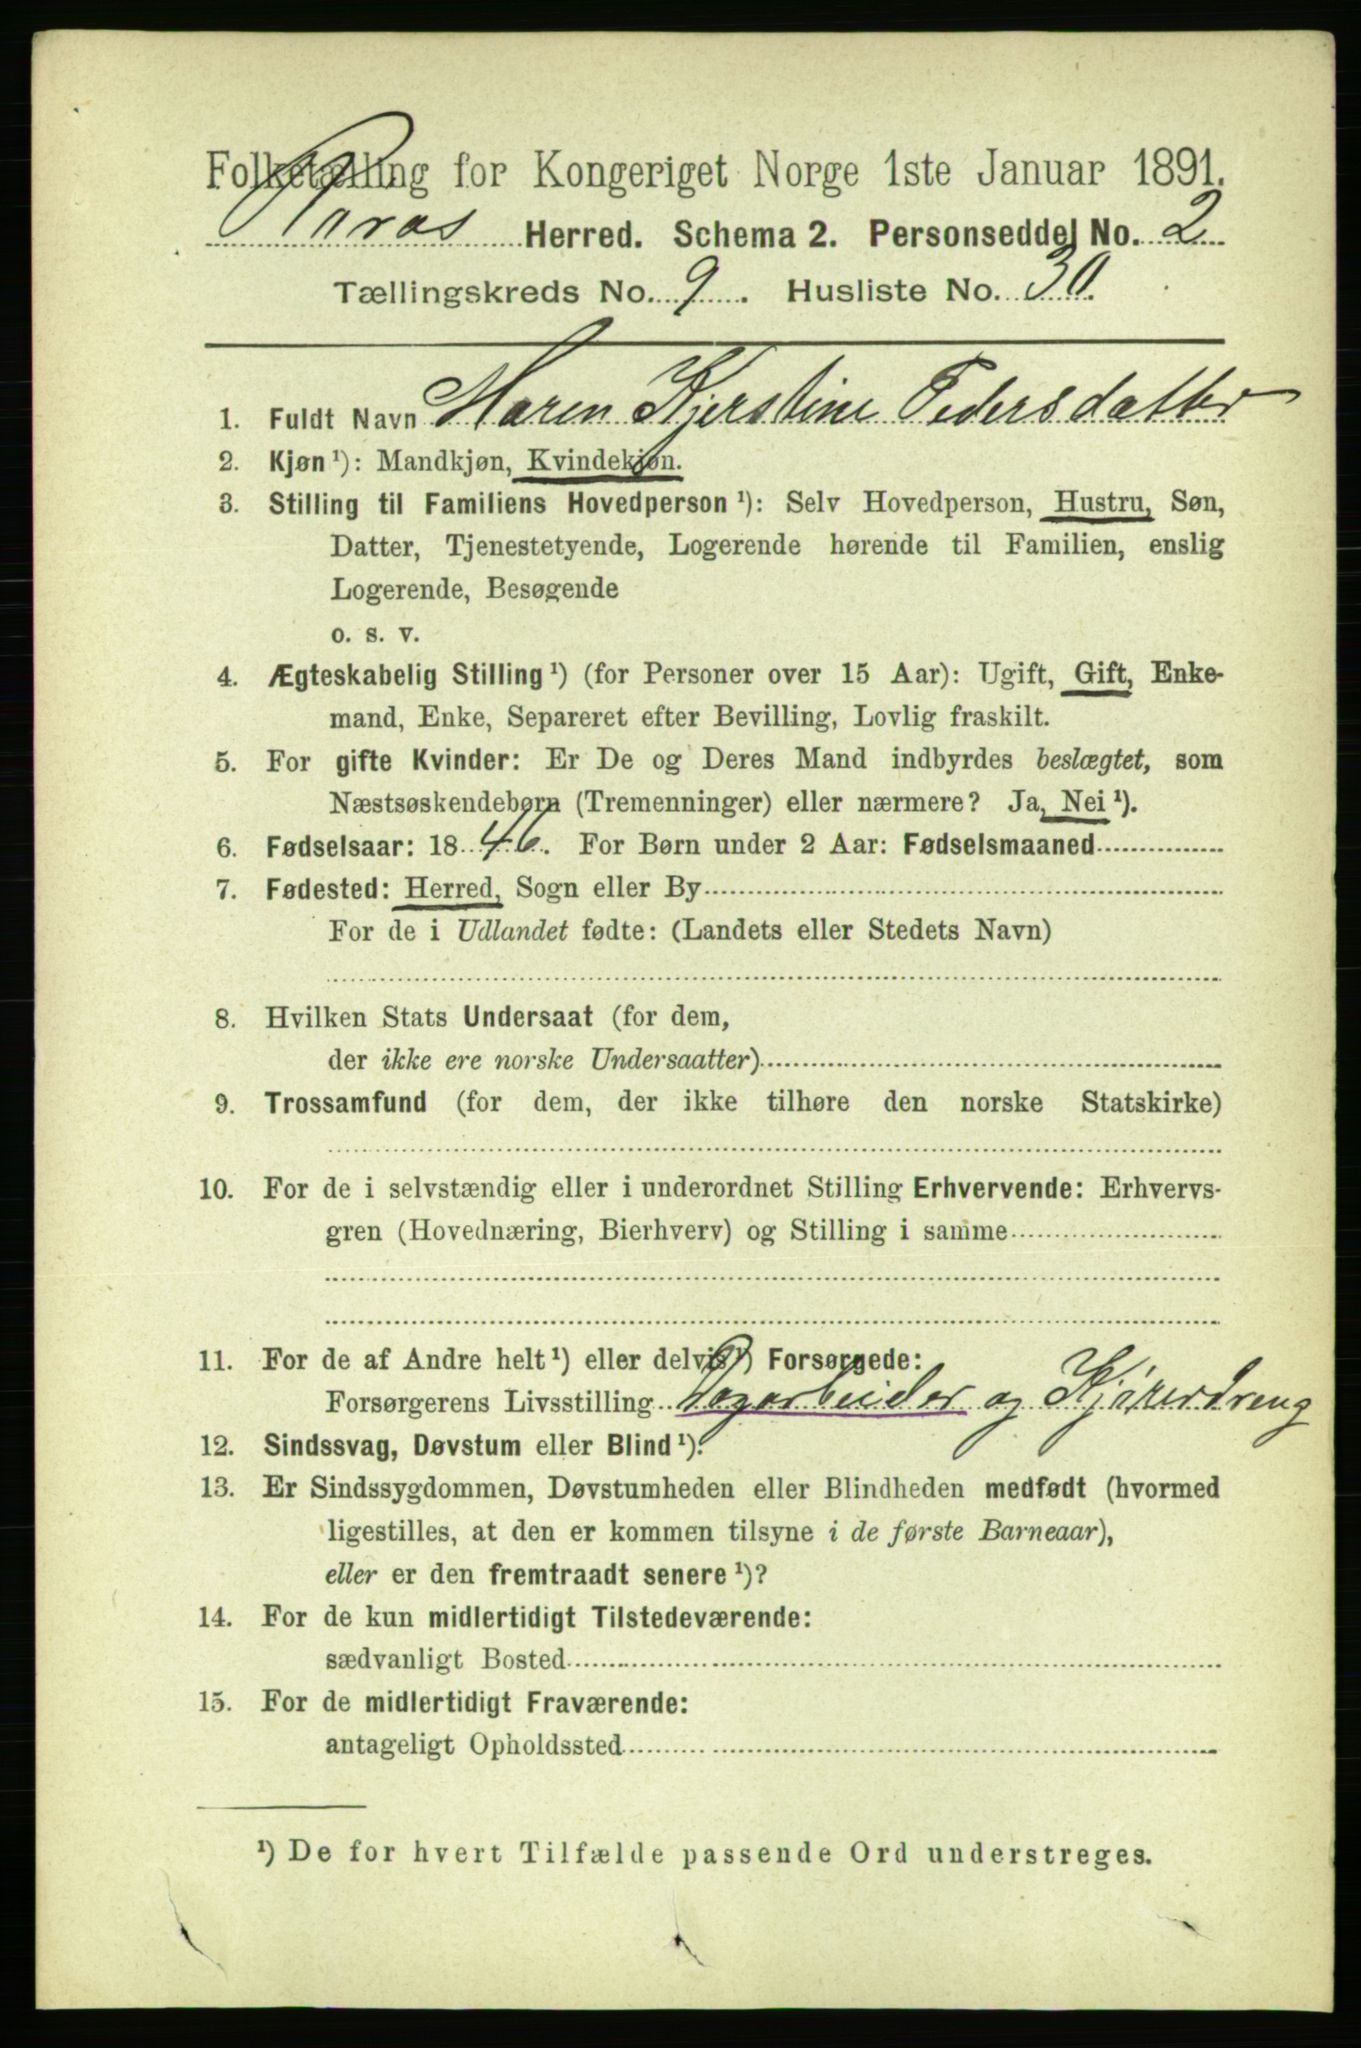 Folketælling for Kongeriget Norge 1ste Januar 1891.
Røraas Herred. Schema 2. Personseddel No. 2
Tællingskreds No. 9. Husliste No. 30.
1. Fuldt Navn Maren Kjerstine Pedersdatter
2. Kjøn ¹): Mandkjøn, Kvindekjøn.
3. Stilling til Familiens Hovedperson ¹): Selv Hovedperson, Hustru, Søn,
Datter, Tjenestetyende, Logerende hørende til Familien, enslig
Logerende, Besøgende
o. s. v.
4. Ægteskabelig Stilling ¹) (for Personer over 15 Aar): Ugift, Gift, Enke-
mand, Enke, Separeret efter Bevilling, Lovlig fraskilt.
5. For gifte Kvinder: Er De og Deres Mand indbyrdes beslægtet, som
Næstsøskendebørn (Tremenninger) eller nærmere? Ja, Nei ¹).
6. Fødselsaar: 1846. For Børn under 2 Aar: Fødselsmaaned
7. Fødested: Herred, Sogn eller By
For de i Udlandet fødte: (Landets eller Stedets Navn)
8. Hvilken Stats Undersaat (for dem,
der ikke ere norske Undersaatter)
9. Trossamfund (for dem, der ikke tilhøre den norske Statskirke)
10. For de i selvstændig eller i underordnet Stilling Erhvervende: Erhvervs-
gren (Hovednæring, Bierhverv) og Stilling i samme
11. For de af Andre helt ¹) eller delvis ¹) Forsørgede:
Forsørgerens Livsstilling Dagarbeider og Kjøredreng
12. Sindssvag, Døvstum eller Blind ¹).
13. Er Sindssygdommen, Døvstumheden eller Blindheden medfødt (hvormed
ligestilles, at den er kommen tilsyne i de første Barneaar),
eller er den fremtraadt senere ¹)?
14. For de kun midlertidigt Tilstedeværende:
sædvanligt Bosted
15. For de midlertidigt Fraværende:
antageligt Opholdssted
¹) De for hvert Tilfælde passende Ord understreges.